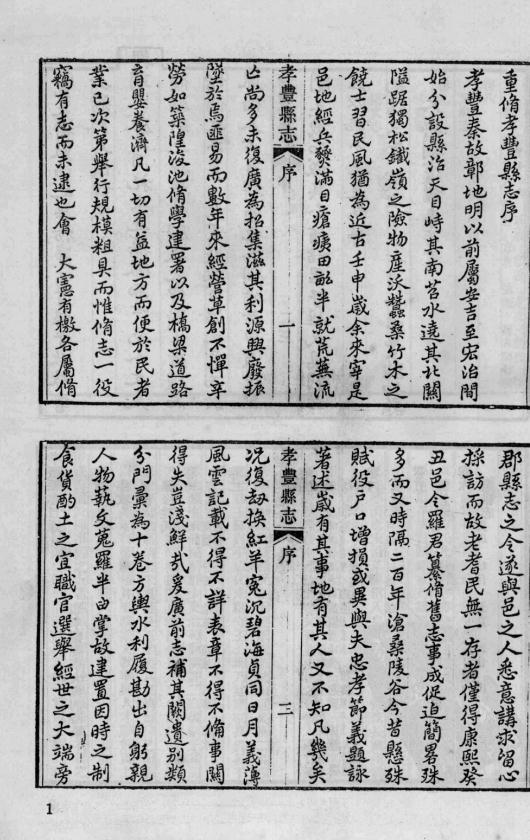 重脩孝豐縣志序
孝豐秦故鄣地明以前屬安吉至宏治間
始分設縣治天目峙其南苕水遶其北關
隘踞獨松鐵嶺之險物產沃蠶桑竹木之
饒士習民風猶為近古壬申歲余來宰是
邑地經兵燹滿目瘡痍田畝半就荒蕪流
孝豐縣志
序
一
亡尚多未復廣為招集滋其利源興廢振
墜於焉匪易而數年來經營草創不憚辛
勞如築隍浚池脩學建署以及橋梁道路
育嬰養濟凡一切有益地方而便於民者
業已次第舉行規模粗具而惟脩志一役
竊有志而未逮也會 大憲有檄各屬脩
郡縣志之令遂與邑之人悉意講求留心
採訪而故老耆民無一存者僅得康熙癸
丑邑令羅君纂脩舊志事成促迫簡畧殊
多而又時隔二百年滄桑陵谷今昔懸殊
賦役戶口增損或異與夫忠孝節義題詠
著述歲有其事地有其人又不知凡幾矣
孝豐縣志
序
三
况復劫換紅羊冤沉碧海貞同日月義薄
風雲記載不得不詳表章不得不備事關
得失豈淺鮮哉爰廣前志補其闕遺別類
分門彙為十卷方輿水利履勘出自躬親
人物藝文蒐羅半由掌故建置因時之制
食貨酌土之宜職官選舉經世之大端旁
1